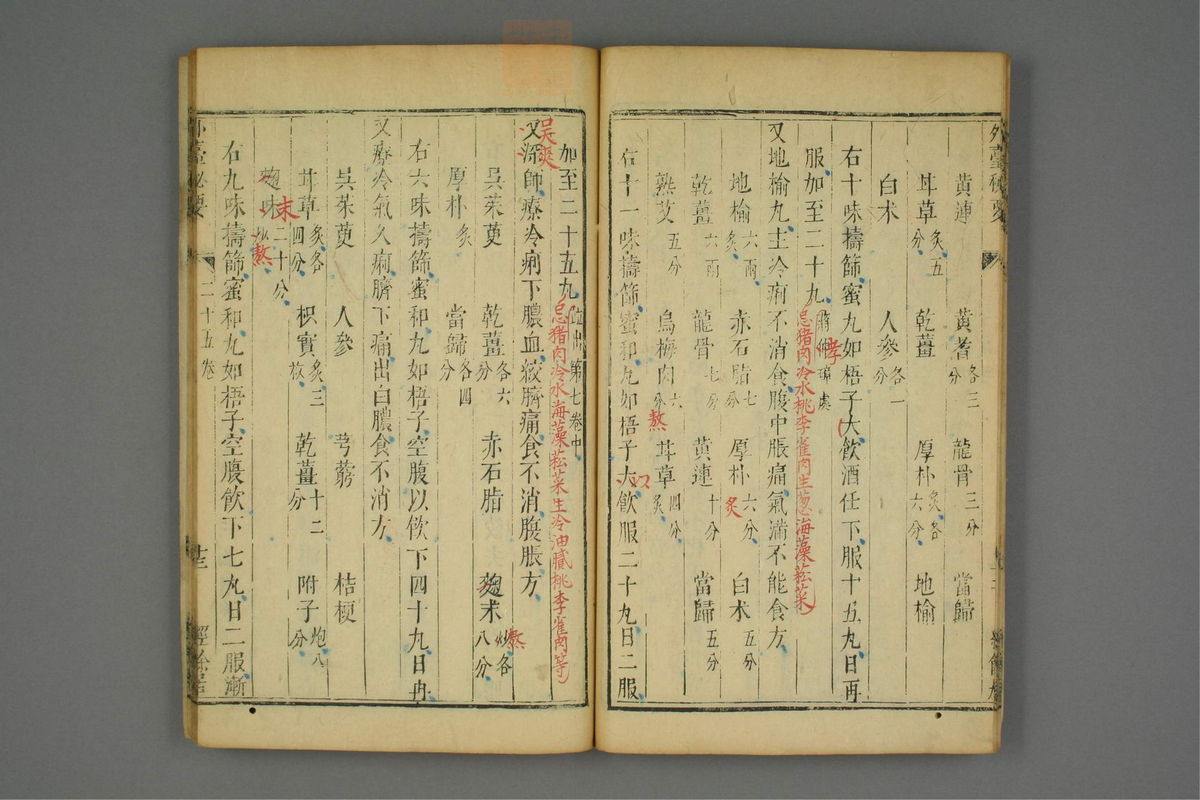 黃連 黃耆各三分 龍骨三分 當歸
甘草炙五分 乾薑 厚朴炙各六分 地榆
白朮 人參各一分
右十味擣篩蜜丸如梧子大飲酒任下服十五丸日再
服加至二十九
忌猪肉冷水桃李雀肉生葱海藻菘菜
又地榆丸主冷痢不消食腹中脹痛氣滿不能食方
地榆六兩炙 赤石脂七分 厚朴六分炙 白朮五分
乾薑六兩 龍骨七分 黃連十分 當歸五分
熟艾五分 烏梅肉六分熬 甘草四分炙
右十一味擣篩蜜和丸如梧子大如飲服二十丸日二服
加至二十五丸並出第七卷中
忌猪肉冷水海藻菘菜生冷油膩桃李雀肉等
吳茰
又深師療冷痢下膿血絞臍痛食不消腹脹方
吳茱萸 乾薑各六分 赤石脂 麴末炒各八分熬
厚朴炙 當歸各四分
右六味擣篩蜜和丸如梧子空腹以飲下四十丸日再
又療冷氣久痢臍下痛出白膿食不消方
吳茱萸 人參 芎藭 桔梗
甘草炙各四分 枳實炙三枚 乾薑十二分 附子炮八分
麴末二十分炒熬
右九味擣篩蜜和丸如梧子空腹飲下七丸日二服漸
外臺秘要 二十五卷 十三 經餘居